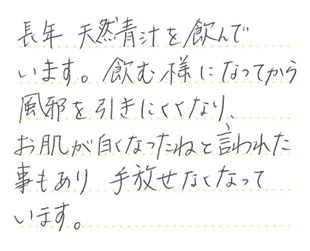 長年 天然青汁を飲んで
います。飲む様になってから
風邪を引きにくくなり、
お肌が白くなったねと言われた
事もあり 手放せなくなって
います。